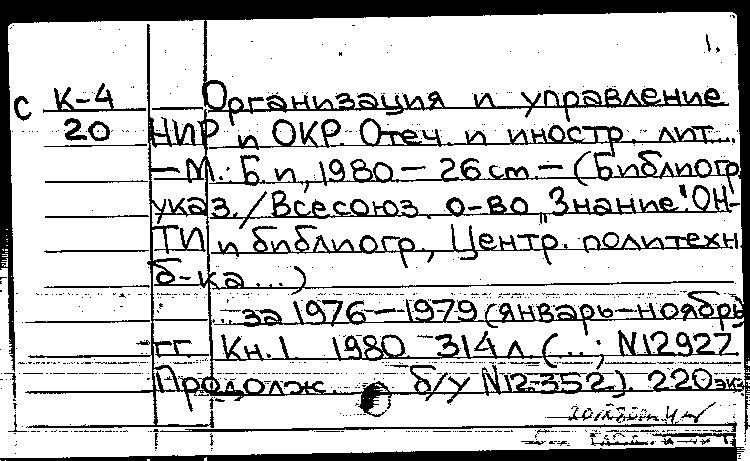 1.
С К-4 Организация и управление
20 НИР и ОКР. Отеч. и иностр. лит...
— М.: Б. и, 1980 — 26 cm — (Библиогр.
указ. / Всесоюз. о-во „Знание". ОН-
ТИ и библиогр., Центр. политехн.
б-ка ...)
... за 1976—1979 (январь-ноябрь)
гг. Кн. 1. 1980. 314 л. (...; N12927
Продолж. б/у N12352). 220 экз